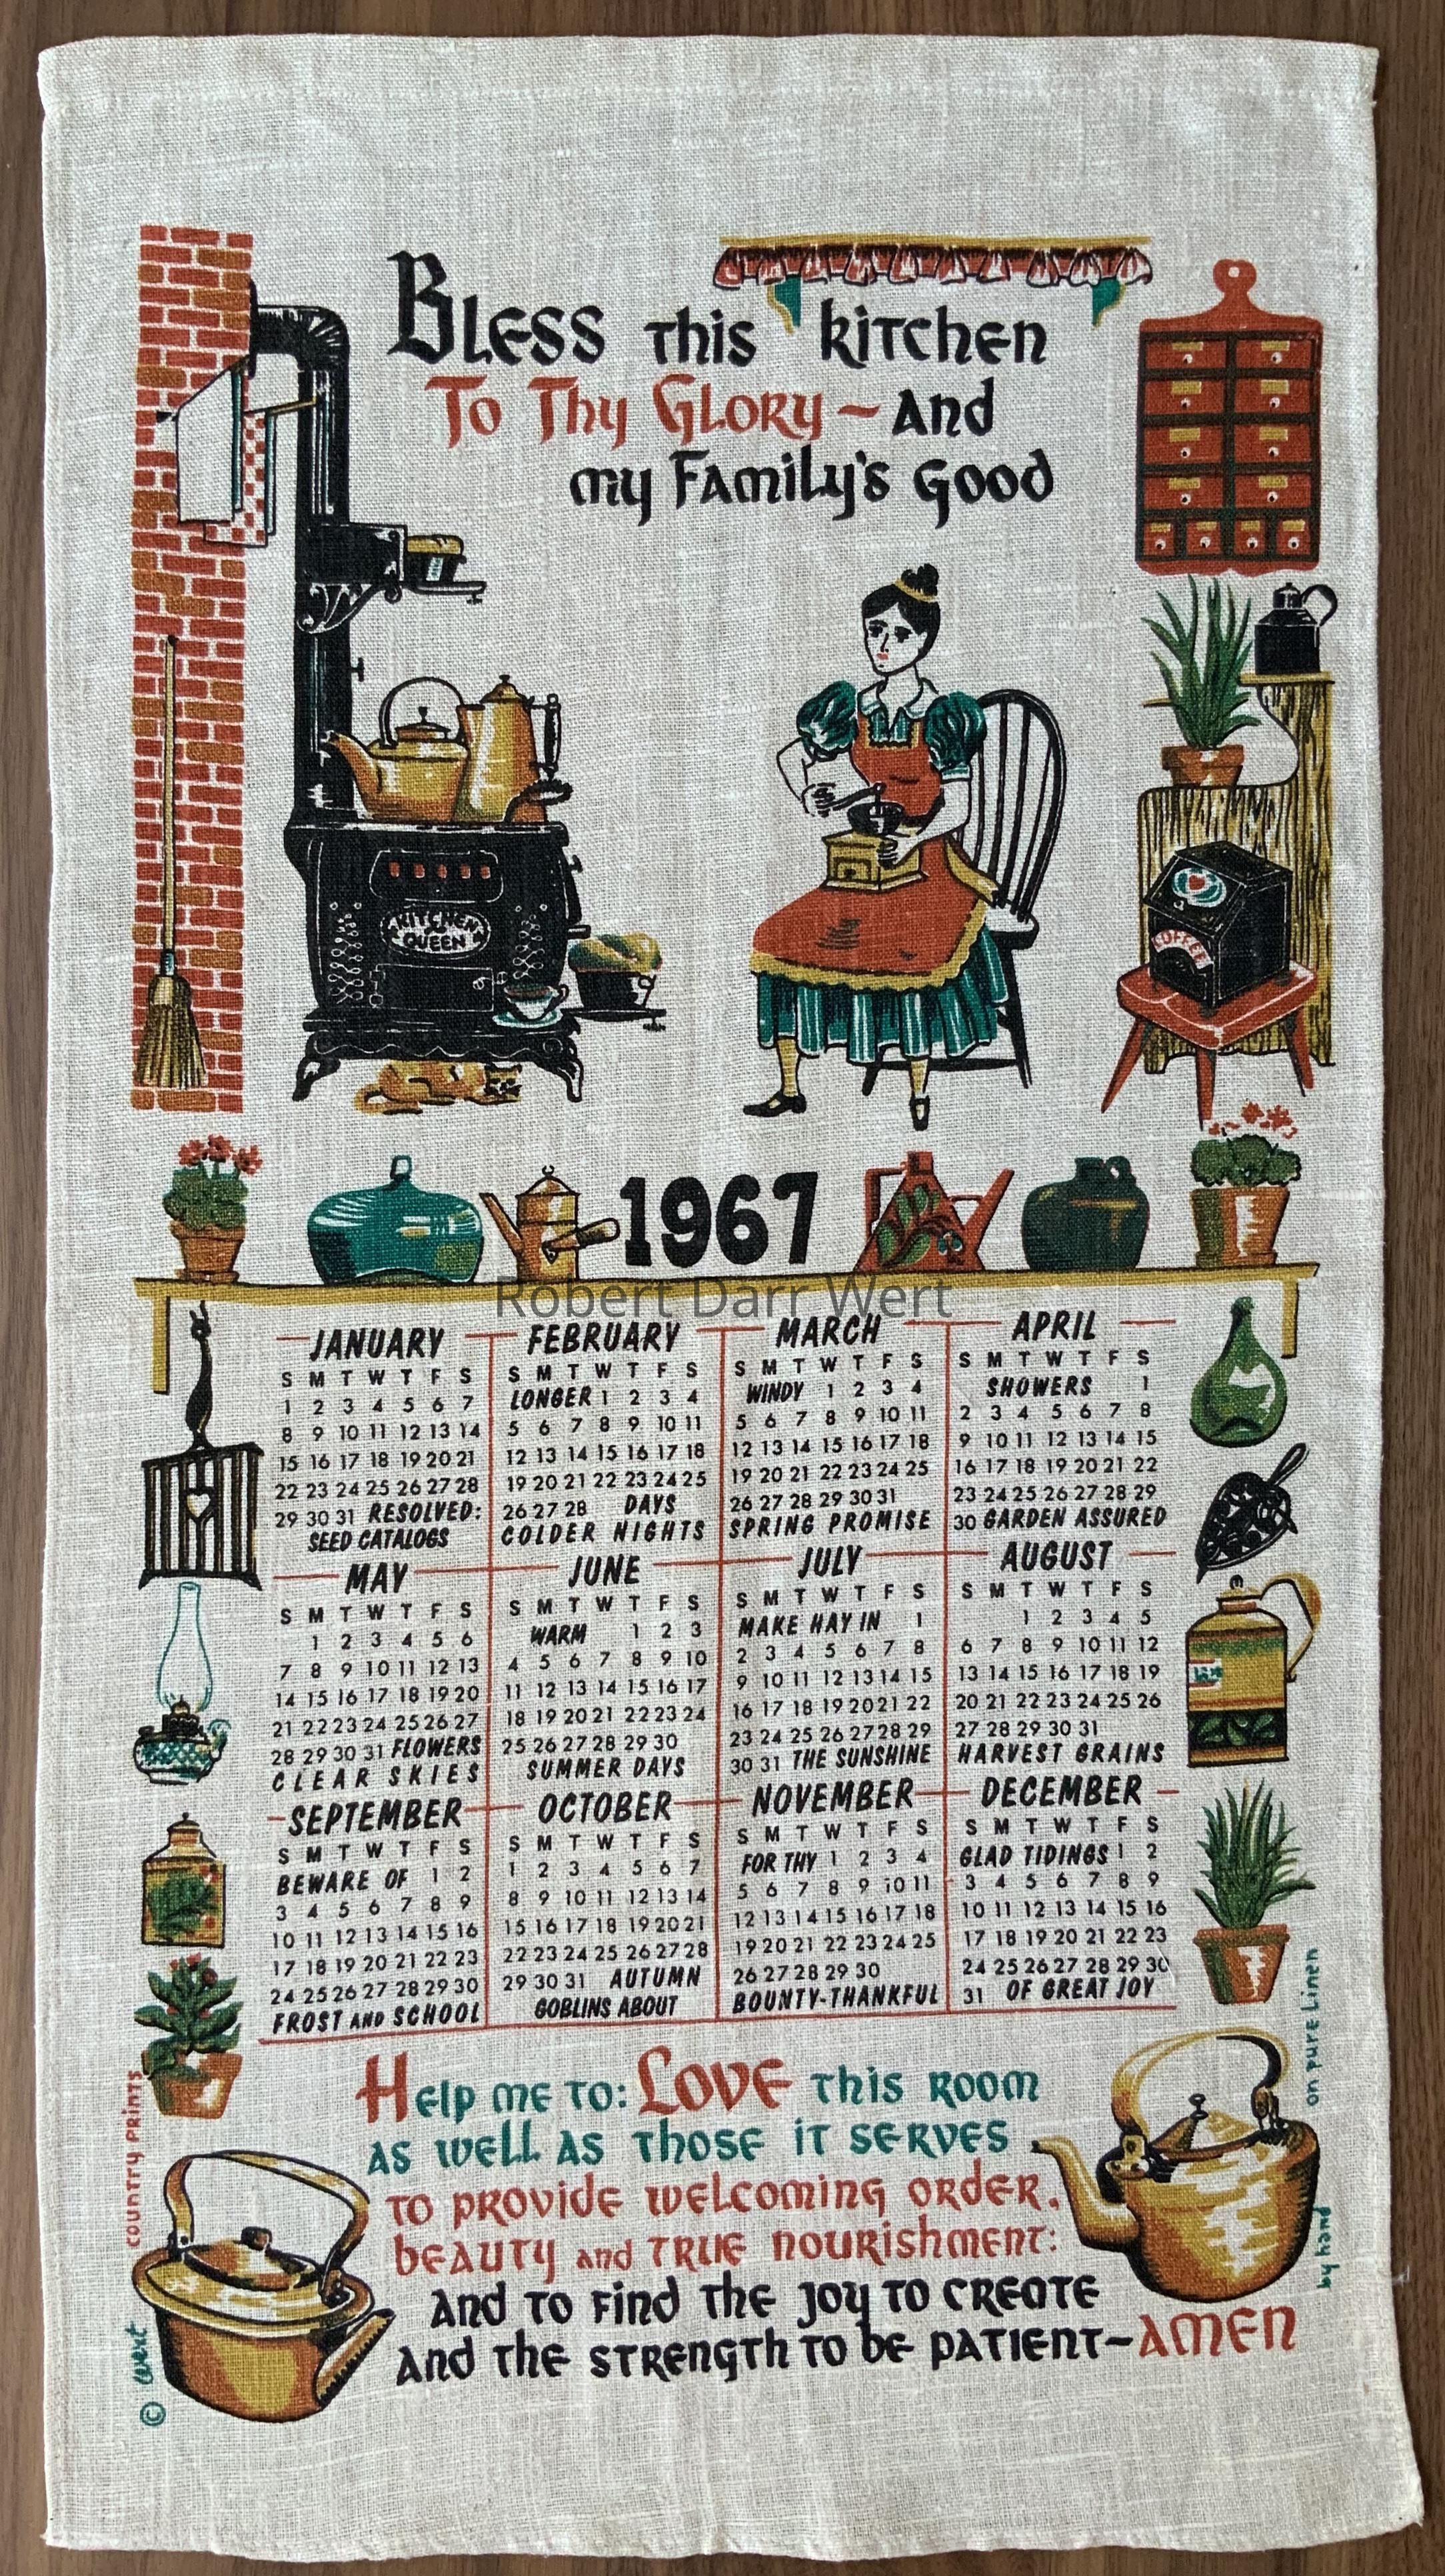 BLESS THIS KITCHEN
TO THY GLORY ~ AND
MY FAMILY'S GOOD
KITCHEN
QUEEN
COFFEE
1967
Robert Darr Wert
JANUARY
S M T W T F S
1 2 3 4 5 6 7
8 9 10 11 12 13 14
15 16 17 18 19 20 21
22 23 24 25 26 27 28
29 30 31 RESOLVED:
SEED CATALOGS
FEBRUARY
S M T W T F S
LONGER 1 2 3 4
5 6 7 8 9 10 11
12 13 14 15 16 17 18
19 20 21 22 23 24 25
26 27 28 DAYS
COLDER NIGHTS
MARCH
S M T W T F S
WINDY 1 2 3 4
5 6 7 8 9 10 11
12 13 14 15 16 17 18
19 20 21 22 23 24 25
26 27 28 29 30 31
SPRING PROMISE
APRIL
S M T W T F S
SHOWERS 1
2 3 4 5 6 7 8
9 10 11 12 13 14 15
16 17 18 19 20 21 22
23 24 25 26 27 28 29
30 GARDEN ASSURED
MAY
S M T W T F S
1 2 3 4 5 6
7 8 9 10 11 12 13
14 15 16 17 18 19 20
21 22 23 24 25 26 27
28 29 30 31 FLOWERS
CLEAR SKIES
JUNE
S M T W T F S
WARM 1 2 3
4 5 6 7 8 9 10
11 12 13 14 15 16 17
18 19 20 21 22 23 24
25 26 27 28 29 30
SUMMER DAYS
JULY
S M T W T F S
MAKE HAY IN 1
2 3 4 5 6 7 8
9 10 11 12 13 14 15
16 17 18 19 20 21 22
23 24 25 26 27 28 29
30 31 THE SUNSHINE
AUGUST
S M T W T F S
1 2 3 4 5
6 7 8 9 10 11 12
13 14 15 16 17 18 19
20 21 22 23 24 25 26
27 28 29 30 31
HARVEST GRAINS
SEPTEMBER
S M T W T F S
BEWARE OF 1 2
3 4 5 6 7 8 9
10 11 12 13 14 15 16
17 18 19 20 21 22 23
24 25 26 27 28 29 30
FROST AND SCHOOL
OCTOBER
S M T W T F S
1 2 3 4 5 6 7
8 9 10 11 12 13 14
15 16 17 18 19 20 21
22 23 24 25 26 27 28
29 30 31 AUTUMN
GOBLINS ABOUT
NOVEMBER
S M T W T F S
FOR THY 1 2 3 4
5 6 7 8 9 10 11
12 13 14 15 16 17 18
19 20 21 22 23 24 25
26 27 28 29 30
BOUNTY-THANKFUL
DECEMBER
S M T W T F S
GLAD TIDINGS 1 2
3 4 5 6 7 8 9
10 11 12 13 14 15 16
17 18 19 20 21 22 23
24 25 26 27 28 29 30
31 OF GREAT JOY
HELP ME TO: LOVE THIS ROOM
AS WELL AS THOSE IT SERVES
TO PROVIDE WELCOMING ORDER,
BEAUTY AND TRUE NOURISHMENT:
AND TO FIND THE JOY TO CREATE
AND THE STRENGTH TO BE PATIENT—AMEN
© Evert
COUNTRY PRINTS
by hand
on pure Linen